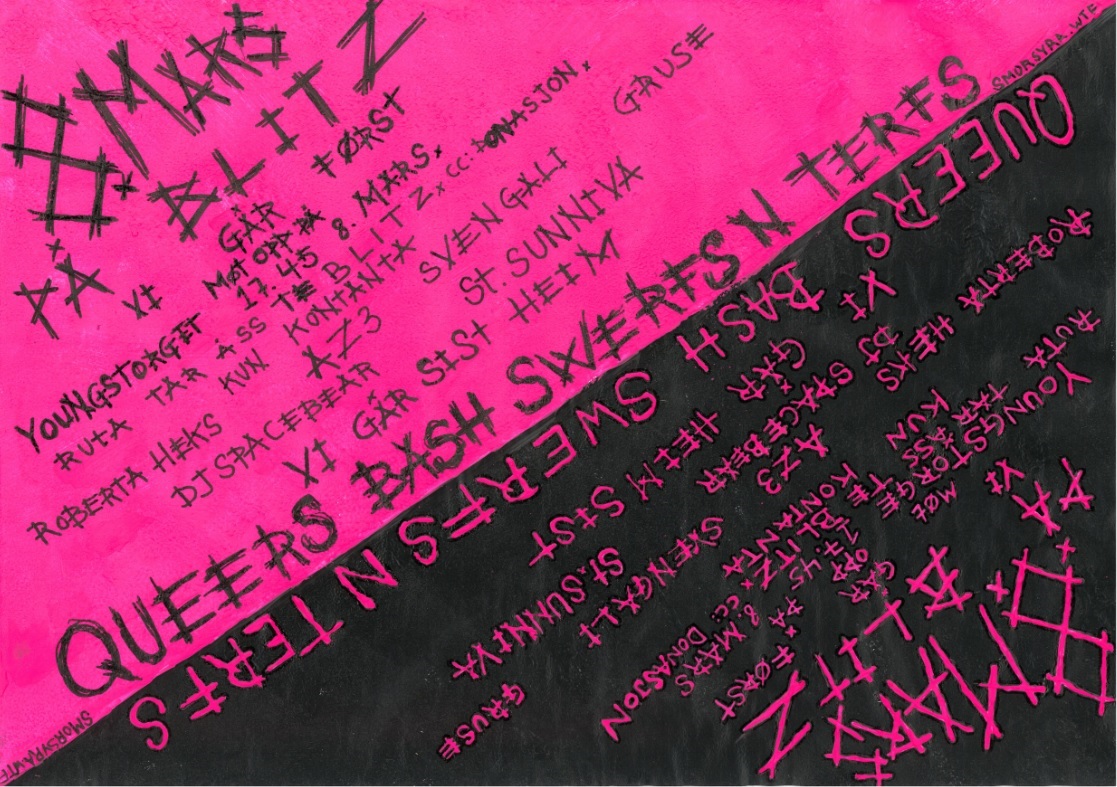 8. MARS
PÅ BLITZ
VI GÅR FØRST
MØT OPP PÅ
YOUNGSTORGET 17.45 8. MARS.
RUTA TAR ASS TE BLITZ x CC: DONASJON x
KUN KONTANTA
ROBERTA HEKS AZ3 SVENGALI GRUSE
DJ SPACEBEAR St. SUNNIVA
VI GÅR SIST HEIM
QUEERS BASH SWERFS N TERFS
SMORSYRA.WTF
QUEERS BASH SWERFS N TERFS
VI GÅR HEIM SIST
DJ SPACEBEAR St. SUNNIVA
ROBERTA HEKS AZ3 SVENGALI GRUSE
KUN KONTANTA
RUTA TAR ASS TE BLITZ x CC: DONASJON
YOUNGSTORGET 17.45 8. MARS
MØT OPP PÅ
VI GÅR FØRST
PÅ BLITZ
8. MARS
SMORSYRA.WTF